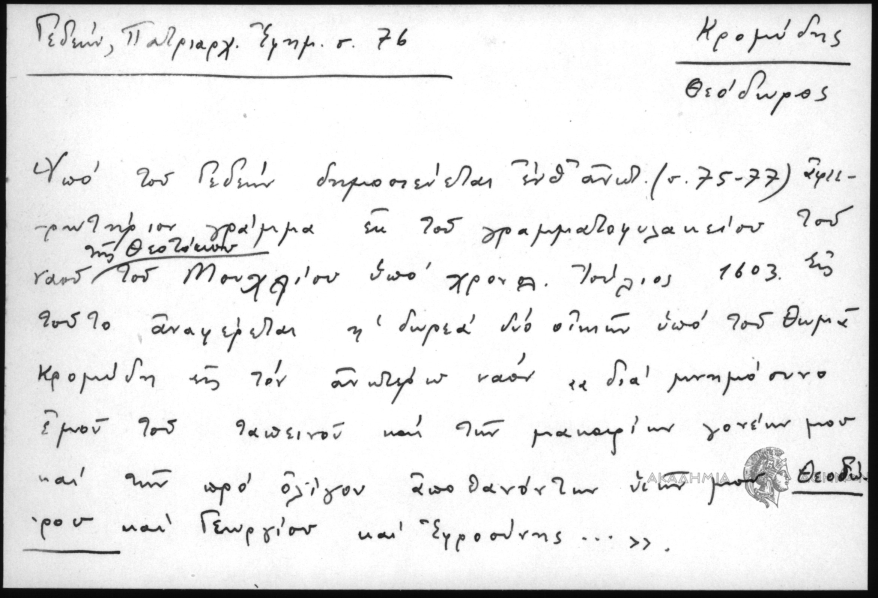 Γεδεών, Πατριαρχ. Ἐφημ. σ. 76
Κρομύδης
Θεόδωρος
Ὑπό τοῦ Γεδεών δημοσιεύεται ἐνθ' ἀνωτ. (σ. 75-77) ἀφιε-
ρωτήριον γράμμα ἐκ τοῦ γραμματοφυλακείου τοῦ
τῆς Θεοτόκου
ναοῦ τοῦ Μουχλίου ὑπό χρονολ. Ἰούλιος 1603. Εἰς
τοῦτο ἀναφέρεται ἡ δωρεά δύο οἰκιῶν ὑπό τοῦ Θωμᾶ
Κρομύδη εἰς τόν ἀνωτέρω ναόν «διά μνημόσυνο
ἐμοῦ τοῦ ταπεινοῦ καί τῶν μακαρίων γονέων μου
καί τῶν πρό ὀλίγον ἀποθανόντων υἱῶν μου Θεοδώ-
ρου καί Γεωργίου καί Ἐφροσύνης ... ».
ΑΚΑΔΗΜΙΑ